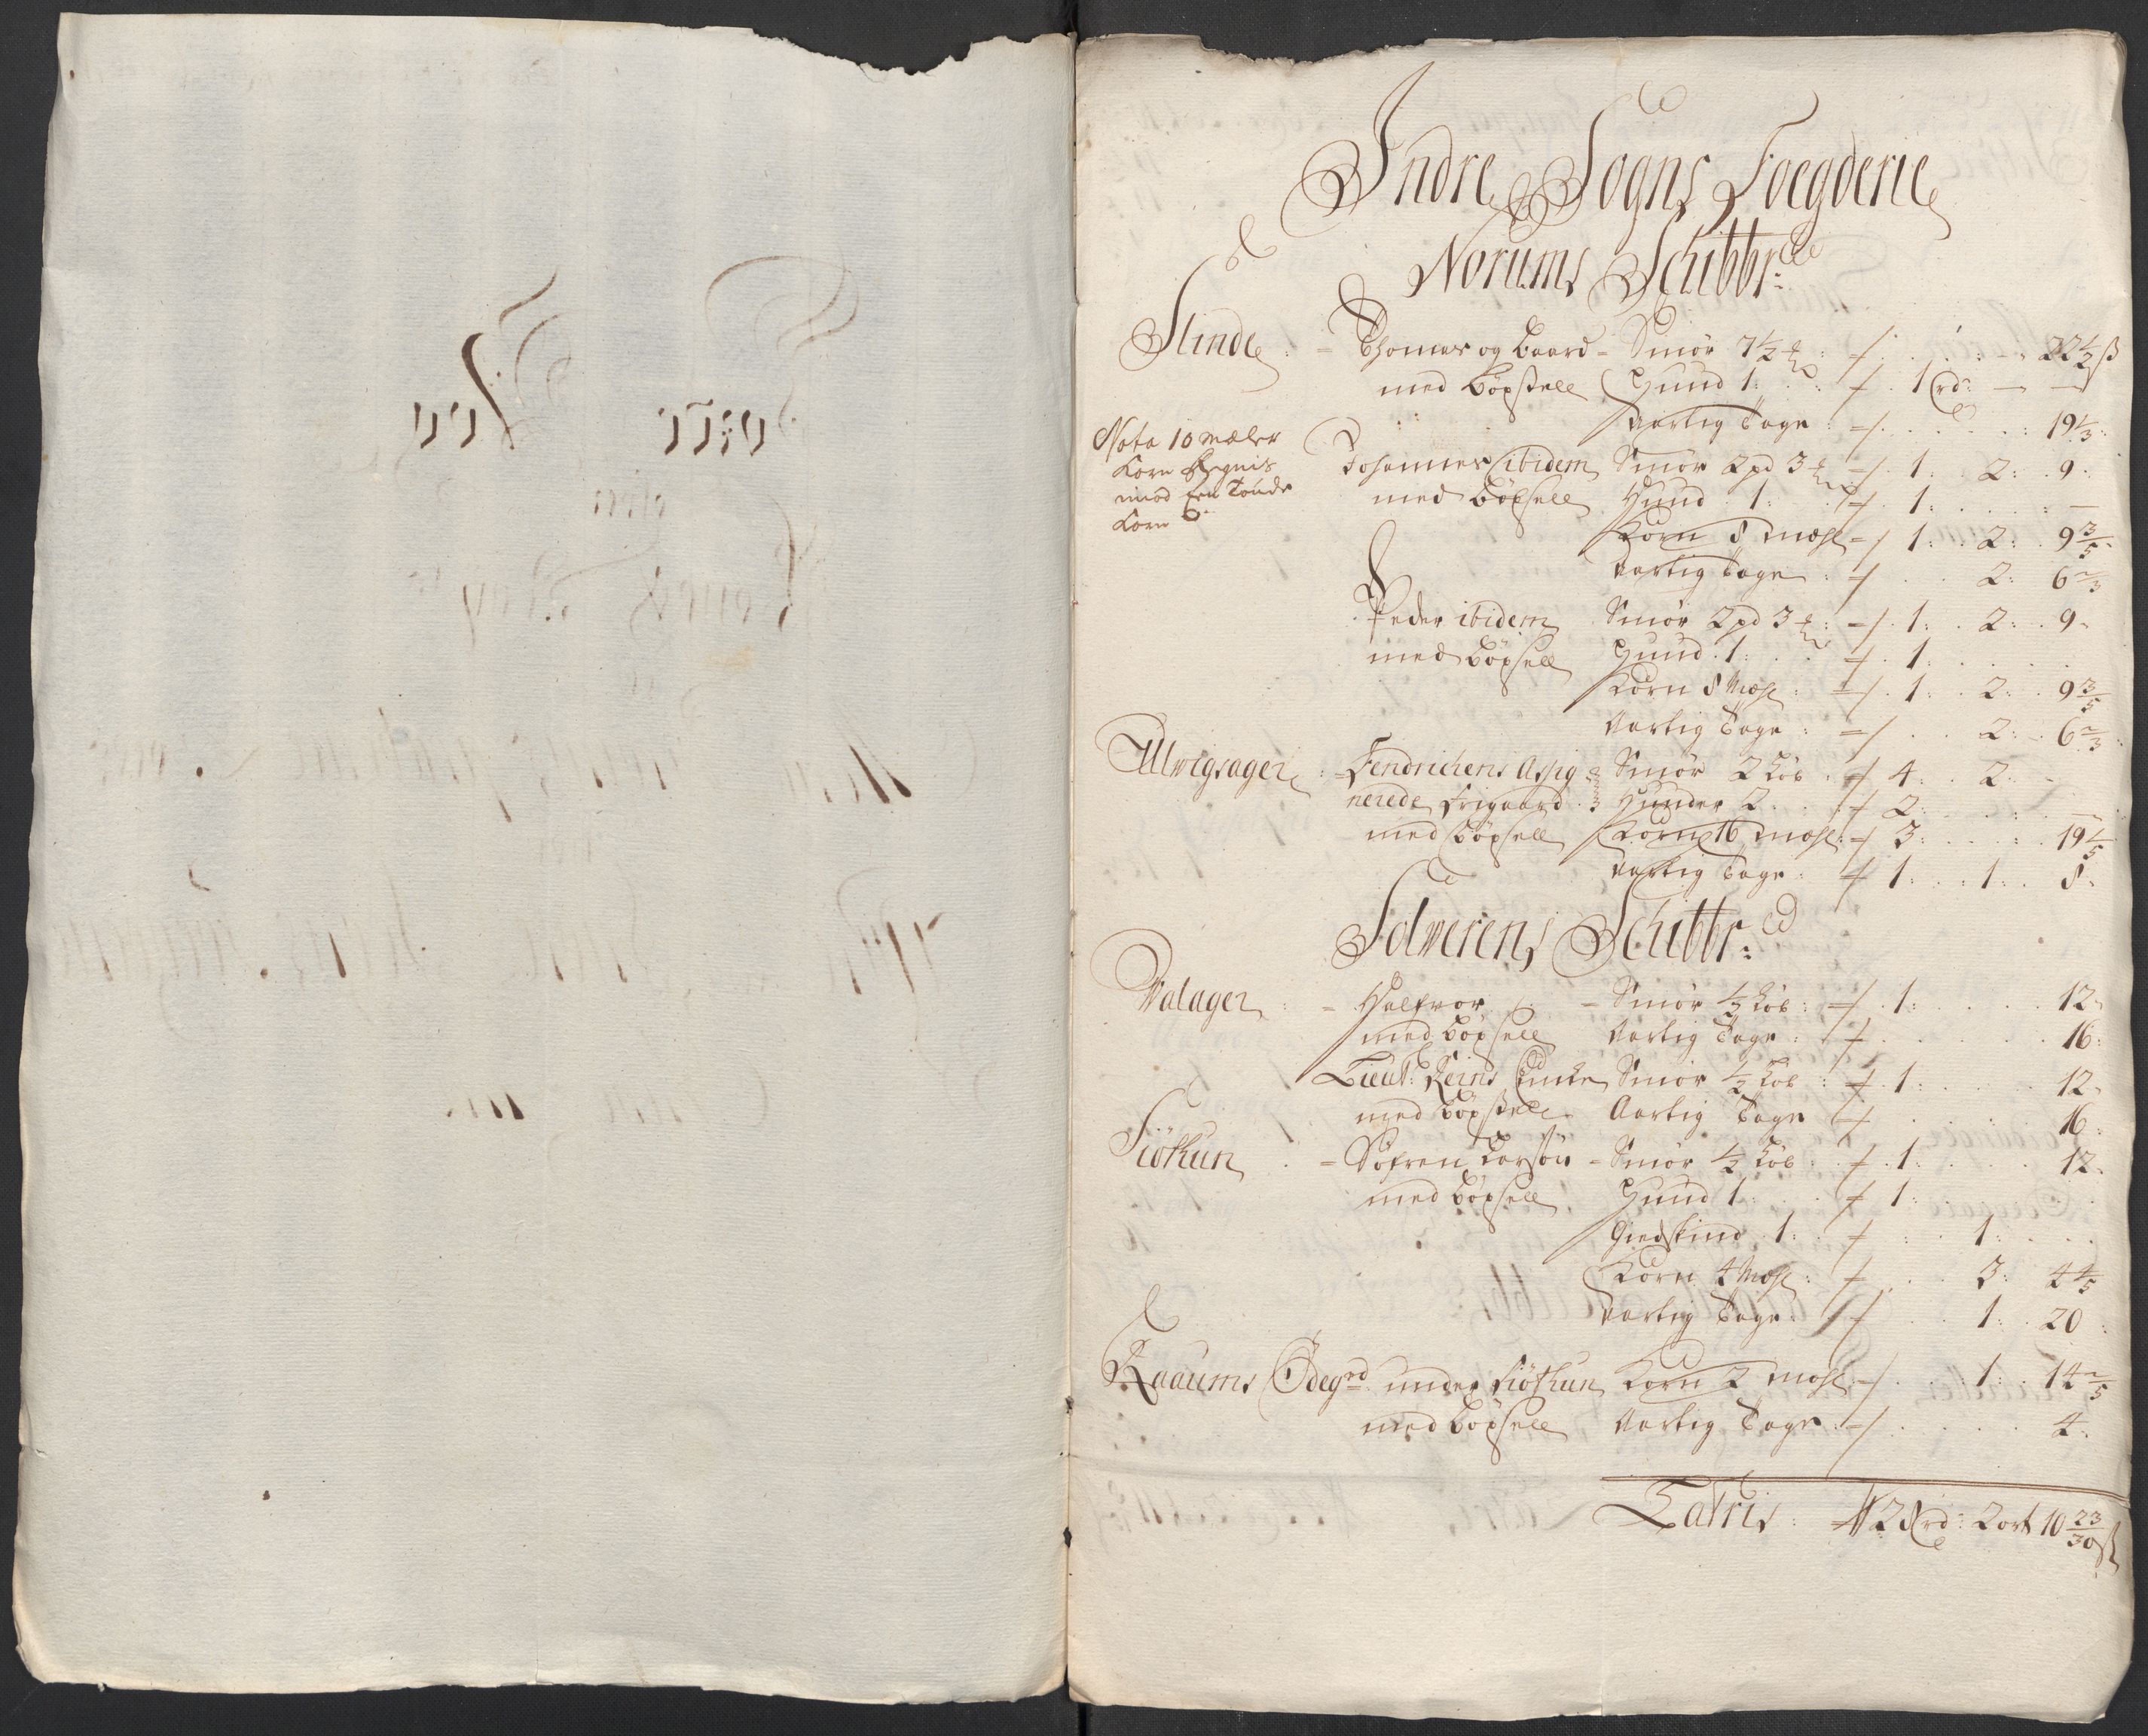 Indre Sogns Foegderie
Norums Schibbr:
Slinde = Thomas og Baard = Smør 7½ = / 22½ ß
med Böxsell Huud 1: = / 1 rd: — —
Aarlig Tage : = / 19⅓:
Nota 10 mæler Korn Regnis imod Een Tønde Korn
Johannes ibidem Smør 2 pd 3 = / 1: 2: 9:
med Böxsell Huud 1: = / 1: —
Korn 8 mæhl = / 1: 2: 9⅗
Aarlig Tage : = / 2: 6⅔
Peder ibidem Smør 2 pd 3 : = / 1: 2: 9
med Böxsell Huud 1: = / 1:
Korn 8 Mæhl : = / 1: 2: 9⅗
Aarlig Tage : = / 2: 6⅔
Ulvigsager := Fendrichens Assig Smør 2 Löb : = / 4: 2:
nerede Frigaard Huuder 2 : = / 2: —
med Böxsell Korn 16 mæhl: = / 3: 19⅕
Aarlig Tage : = / 1: 1: 8:
Solverens Schibbr:
Valager : = Halfvor = Smør ½ Löb : = / 1: 12
med Böxsell Aarlig Tage : = / 16:
Lieut: Reins Enke Smør ½ Löb : = / 1: 12
med Böxsell Aarlig Tage = / 16:
Siöthun = Söfren Larsön = Smør ½ Löb : = / 1: 12
med Böxsell Huud 1: = / 1:
Giedskind 1: = / 1:
Korn 4 Mæhl : = / 3: 4⅘
Aarlig Tage : = / 1: 20
Raaums Ödegrd under Siöthun Korn 2 mæhl = / 1: 14⅖
med Böxsell Aarlig Tage : = / 4:
Latris : 28 rd: 2 ort 10 23/30 ß